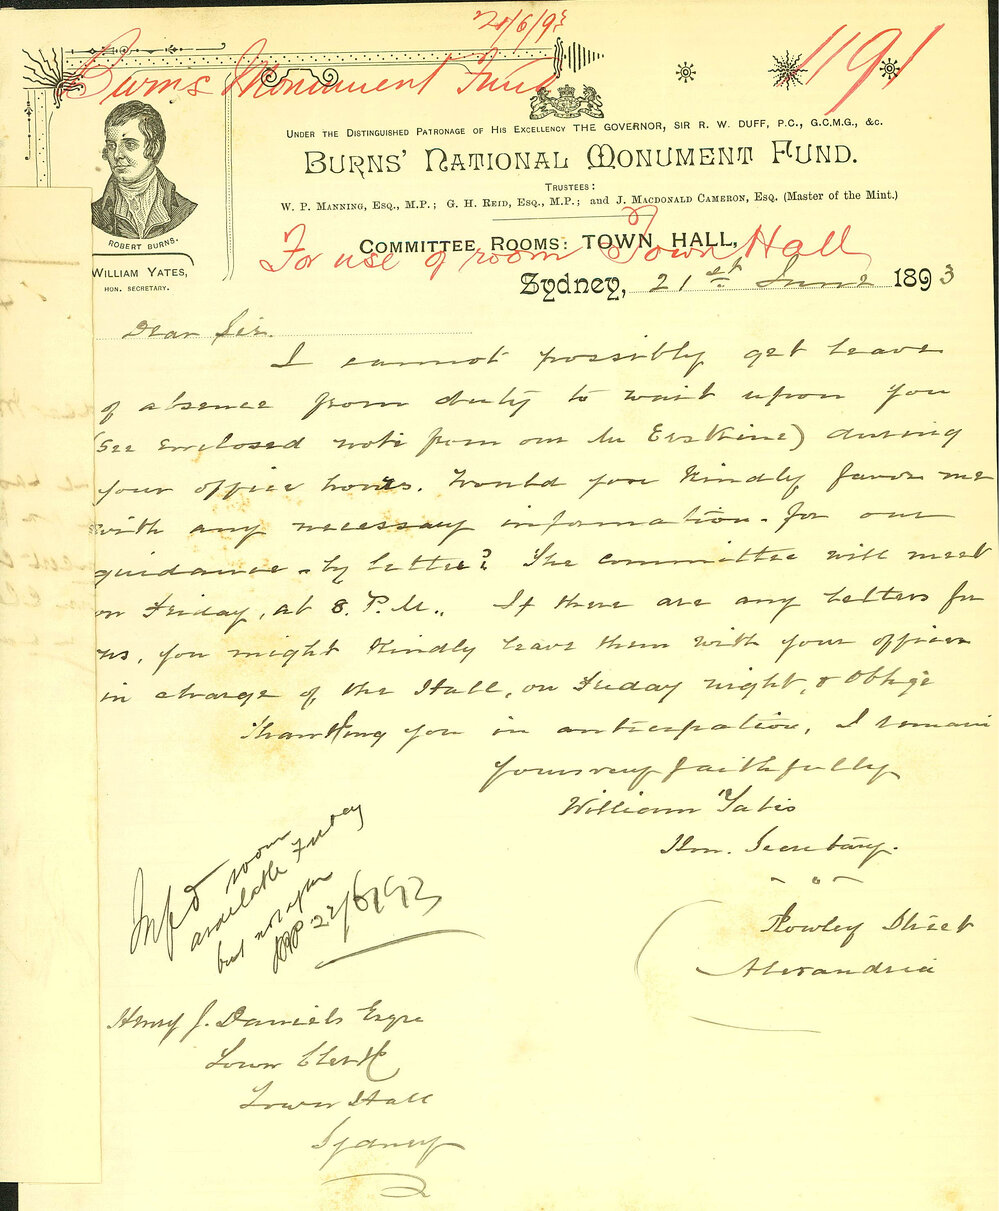 21/6/93
Burns Monument Fund
1191
UNDER THE DISTINGUISHED PATRONAGE OF HIS EXCELLENCY THE GOVERNOR, SIR R. W. DUFF, P.C., G.C.M.G., &c.
BURNS' NATIONAL MONUMENT FUND.
TRUSTEES:
W. P. MANNING, ESQ., M.P.; G. H. REID, ESQ., M.P.; and J. MACDONALD CAMERON, ESQ. (Master of the Mint.)
ROBERT BURNS.
WILLIAM YATES,
HON. SECRETARY.
COMMITTEE ROOMS: TOWN HALL,
For use of room Town Hall
Sydney, 21st June 1893
Dear Sir.
I cannot possibly get leave
of absence from duty to wait upon you
(see enclosed note from our Mr Erskine) during
your office hours. Would you kindly favor me
with any necessary information - for our
guidance - by letter? The committee will meet
on Friday, at 8. P.M.. If there are any letters for
us, you might kindly leave them with your officer
in charge of the Hall, on Friday night, & oblige
Thanking you in anticipation, I remain
yours very faithfully
William Yates
Hon. Secretary.
Rowley Street
Alexandria
Inf'd room
available Friday
but not after
22/6/93
Henry J. Daniels Esqre
Town Clerk
Town Hall
Sydney